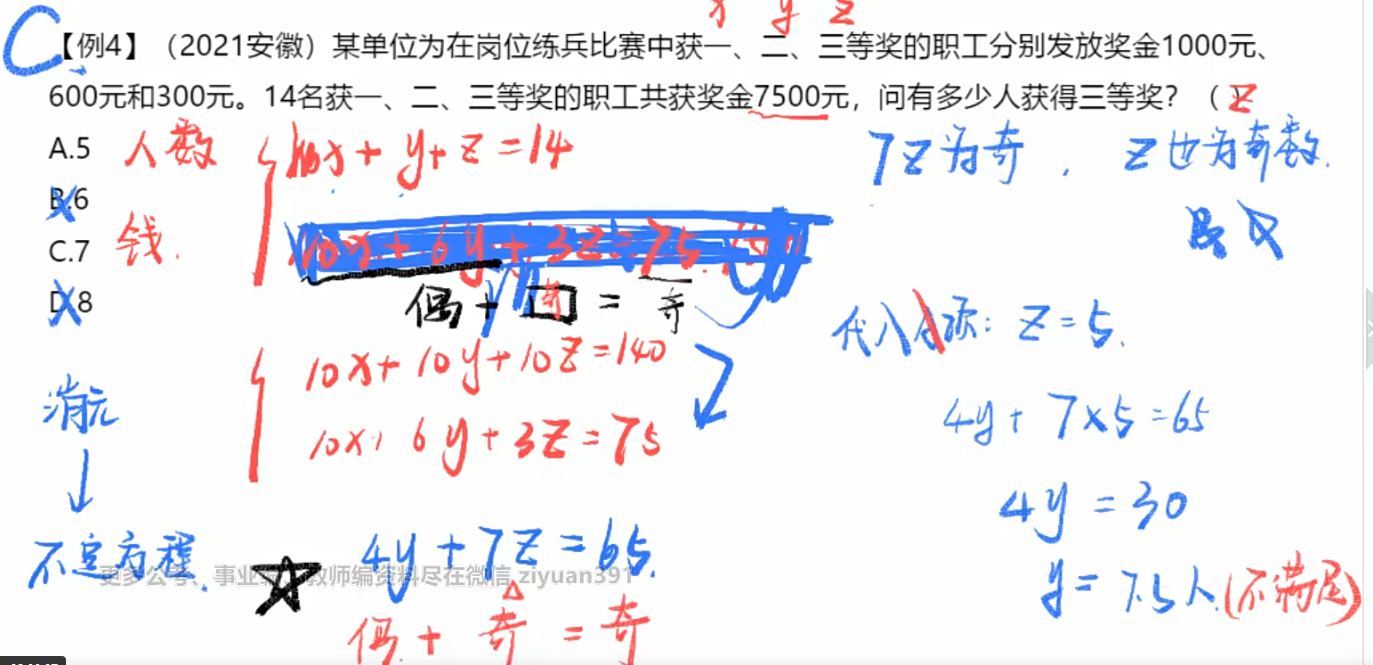 x y z
C
【例4】（2021安徽）某单位为在岗位练兵比赛中获一、二、三等奖的职工分别发放奖金1000元、
600元和300元。14名获一、二、三等奖的职工共获奖金7500元，问有多少人获得三等奖？（ ）
z
A.5
B.6
C.7
D.8
人数
x + y + z = 14
钱.
10x + 6y + 3z = 75
偶 + 奇 = 奇
10x + 10y + 10z = 140
10x + 6y + 3z = 75
消元
↓
不定方程.
4y + 7z = 65.
偶 + 奇 = 奇
7z为奇， z也为奇数.
代入 项: z = 5.
4y + 7×5 = 65
4y = 30
y = 7.5人.(不满足)
更多公考、事业 教师编资料尽在微信 ziyuan391